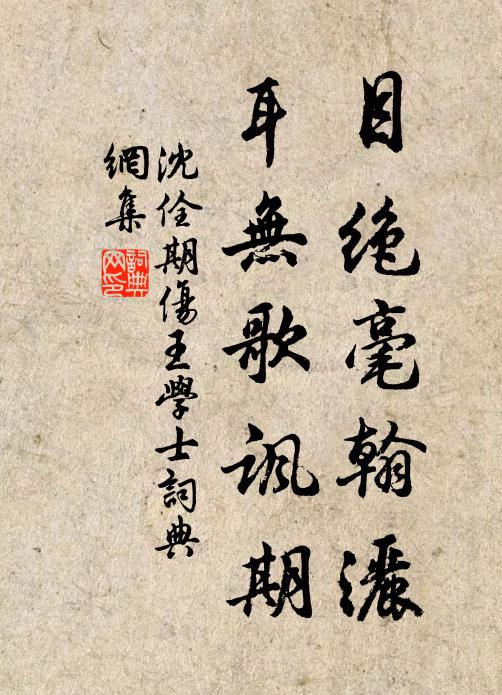 目绝毫翰灑
耳無歌諷期
沈佺期傷王學士詞典
網集
詞典
网印